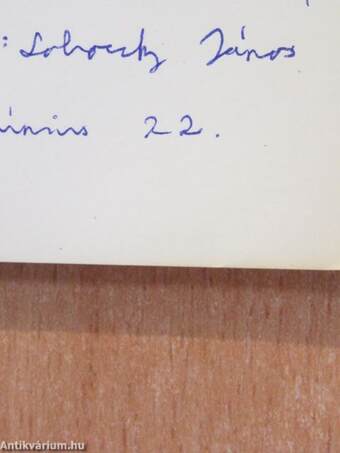 : Sobocsky János
június 22.
Antikvárium.hu